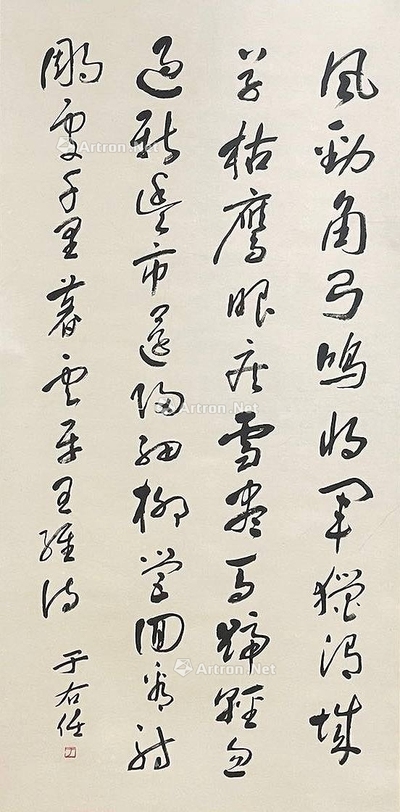 風勁角弓鳴將軍獵渭城
草枯鷹眼疾雪盡馬蹄輕忽
過新豐市還歸細柳營回看射
鵰處千里暮雲平王維詩
于右任
Artron.Net
Artron.Net
Artron.Net
Artron.Net